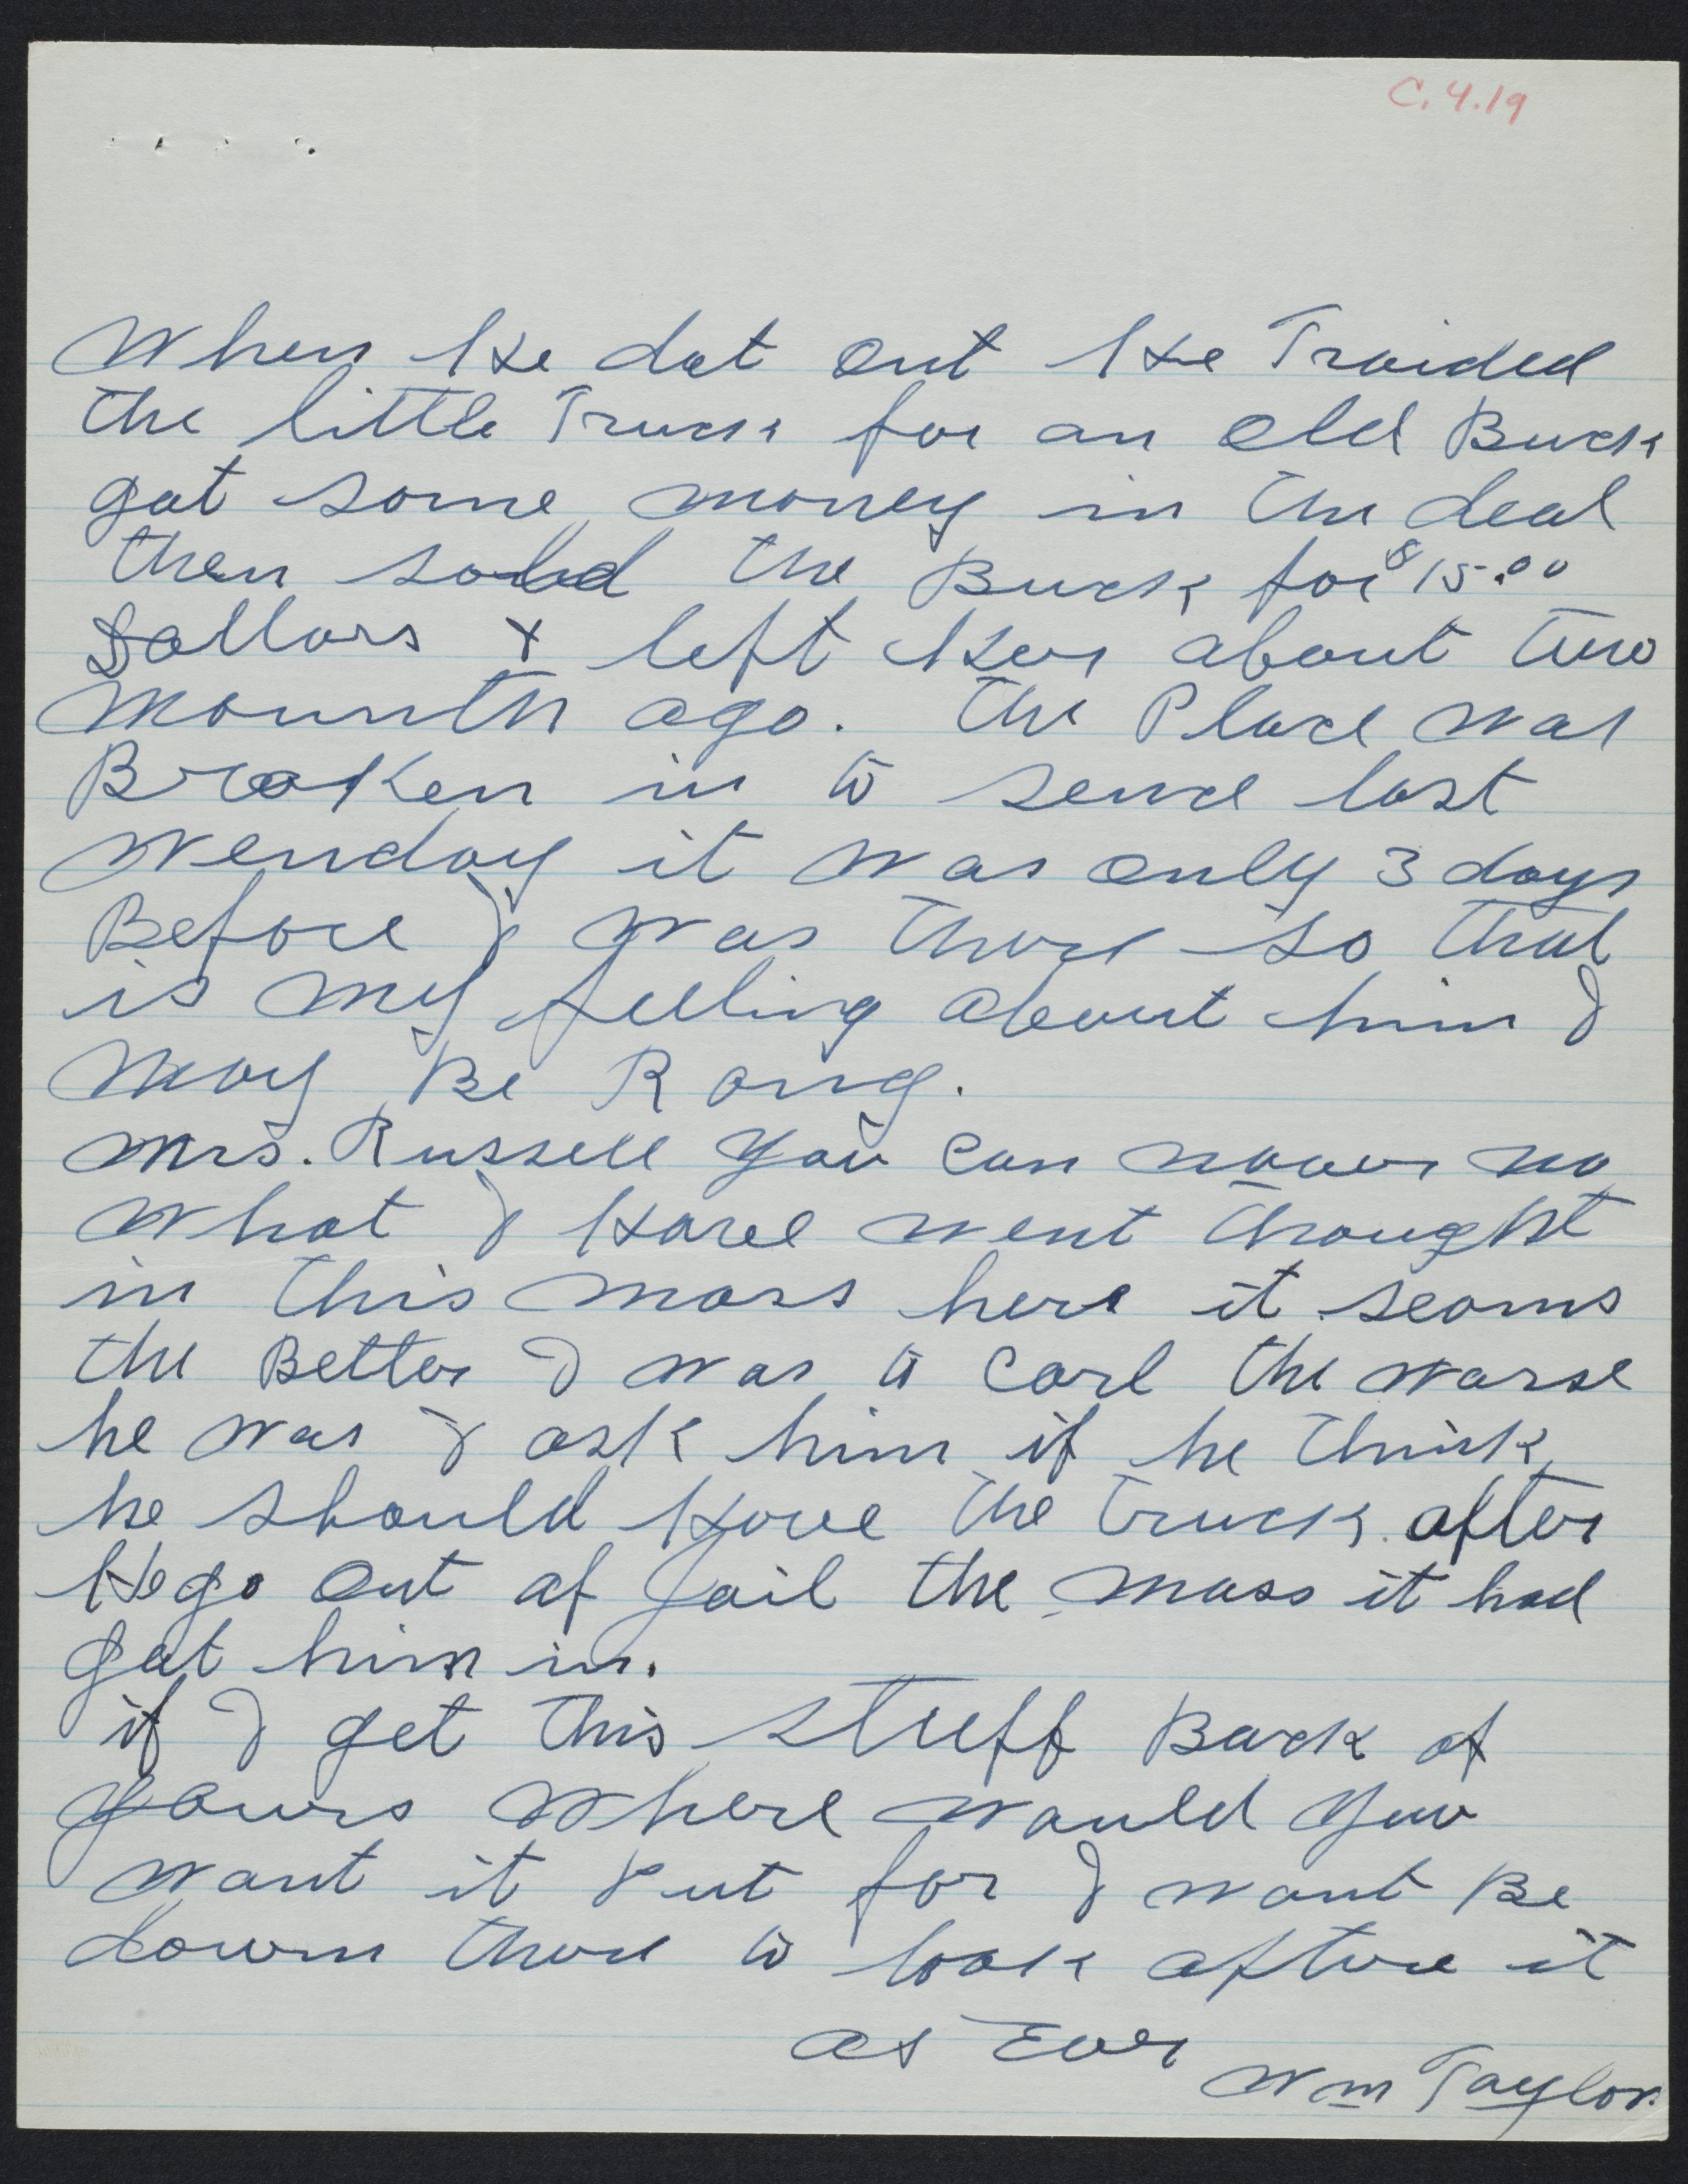 C.4.19
When He dot out He Traided
the little Truck for an old Buck
got some money in the deal
then sold the Buck for $15.00
Dallars + left Her about two
mounth ago. The Place was
Broken in to sence last
wenday it was only 3 days
Before I was there so that
is my felling about him I
may Be Rong.
Mrs. Russell you can never no
what I Have went throught
in this mass here it seams
the Better I was to Carl the warse
he was I ask him if he think
he should Have the truck after
He go out of Jail the mass it had
got him in.
if I get this stuff Back of
yours where would you
want it Put for I want Be
down there to look aftere it
as Ever
Wm Taylor.